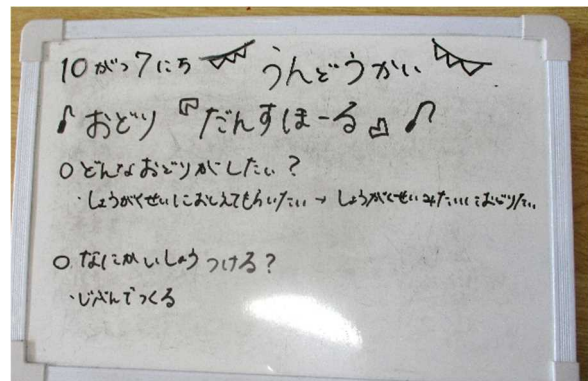 10がつ7にち うんどうかい
♪おどり『だんすほーる』♪
○どんなおどりがしたい？
・しょうがくせいにおしえてもらいたい→しょうがくせいみたいにおどりたい
○なにかいしょうつける？
・じぶんでつくる